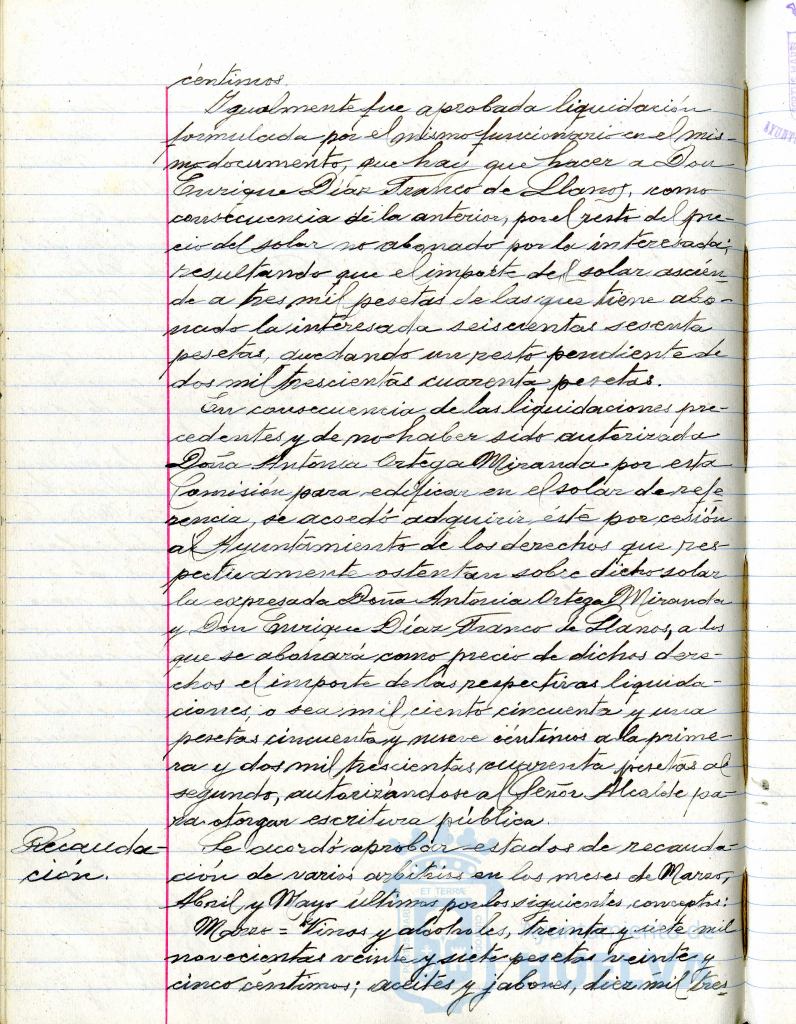 céntimos.
Igualmente fue aprobada liquidación
formulada por el mismo funcionario en el mis-
mo documento, que hay que hacer a Don
Enrique Díaz Franco de Llanos, como
consecuencia de la anterior, por el resto del pre-
cio del solar no abonado por la interesada;
resultando que el importe del solar ascien-
de a tres mil pesetas de las que tiene abo-
nado la interesada seiscientas sesenta
pesetas, quedando un resto pendiente de
dos mil trescientas cuarenta pesetas.
En consecuencia de las liquidaciones pre-
cedentes y de no haber sido autorizada
Doña Antonia Ortega Miranda por esta
Comisión para edificar en el solar de refe-
rencia, se acordó adquirir éste por cesión
al Ayuntamiento de los derechos que res-
pectivamente ostentan sobre dicho solar
la expresada Doña Antonia Ortega Miranda
y Don Enrique Díaz Franco de Llanos, a los
que se abonará como precio de dichos dere-
chos el importe de las respectivas liquida-
ciones, o sea mil ciento cincuenta y una
pesetas cincuenta y nueve céntimos a la prime-
ra y dos mil trescientas cuarenta pesetas al
segundo, autorizándose al Señor Alcalde pa-
ra otorgar escritura pública.
Recauda-
ción.
Se acordó aprobar estados de recauda-
ción de varios arbitrios en los meses de Marzo,
Abril y Mayo últimos por los siguientes conceptos:
Marzo = Vinos y alcoholes, treinta y siete mil
novecientas veinte y siete pesetas veinte y
cinco céntimos; aceites y jabones, diez mil tres-
ET TERRAE
Ayuntamiento de
HUELVA